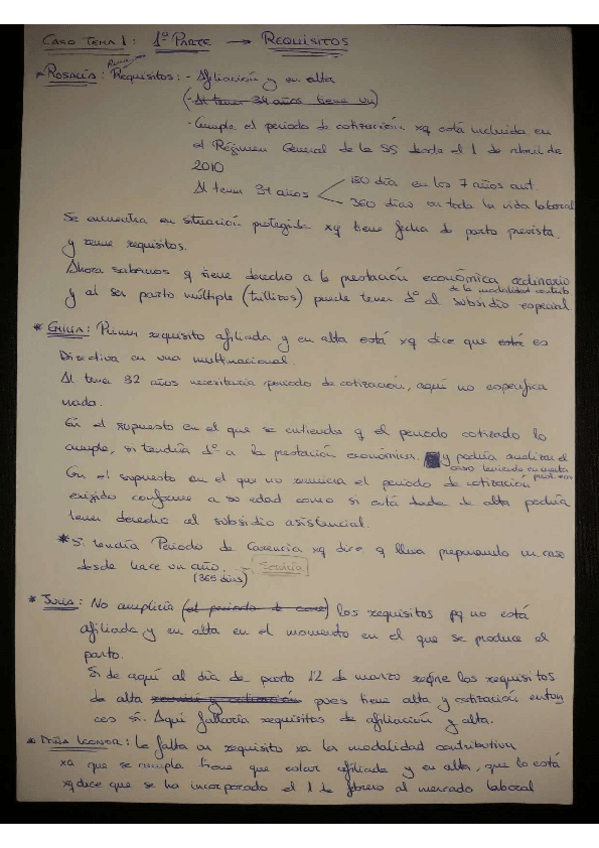 CASO TEMA 1: 1ª PARTE → REQUISITOS
Reune
* ROSALÍA: Requisitos: - Afiliación y en alta
(- Al tener 34 años tiene un)
- Cumple el periodo de cotización xq está incluida en
el Régimen General de la SS desde el 1 de abril de
2010
Al tener 34 años
180 día en los 7 años ant.
360 días en toda la vida laboral
Se encuentra en situación protegida xq tiene fecha de parto prevista.
y reune requisitos.
Ahora sabemos q tiene derecho a la prestación económica ordinario
de la modalidad contrib
y al ser parto múltiple (trillizos) puede tener dº al subsidio especial
* EMILIA: Primer requisito afiliada y en alta está xq dice que está es
Directiva en una multinacional.
Al tener 32 años necesitaria periodo de cotización, aquí no especifica
nada.
En el supuesto en el que se entienda q el periodo cotizado lo
cumple, si tendría dº a la prestación económica. y podría analizar el
caso teniendo en cuenta
En el supuesto en el que no reuniera el periodo de cotización
exigido conforme a su edad como si está dada de alta podría
tener derecho al subsidio asistencial.
* Si tendría Periodo de Carencia xq dice q lleva preparando un caso
desde hace un año.
(365 días)
* JULIA: No cumpliría (el periodo de) los requisitos pq no está
afiliada y en alta en el momento en el que se produce el
parto.
Si de aquí al día de parto 12 de marzo reúne los requisitos
de alta y cotización pues tiene alta y cotización enton
ces si. Aquí faltaría requisitos de afiliación y alta.
* DOÑA LEONOR: Le falta un requisito xa la modalidad contributiva
xa que se cumpla tiene que estar afiliada y en alta, que lo está
xq dice que se ha incorporado el 1 de febrero al mercado laboral